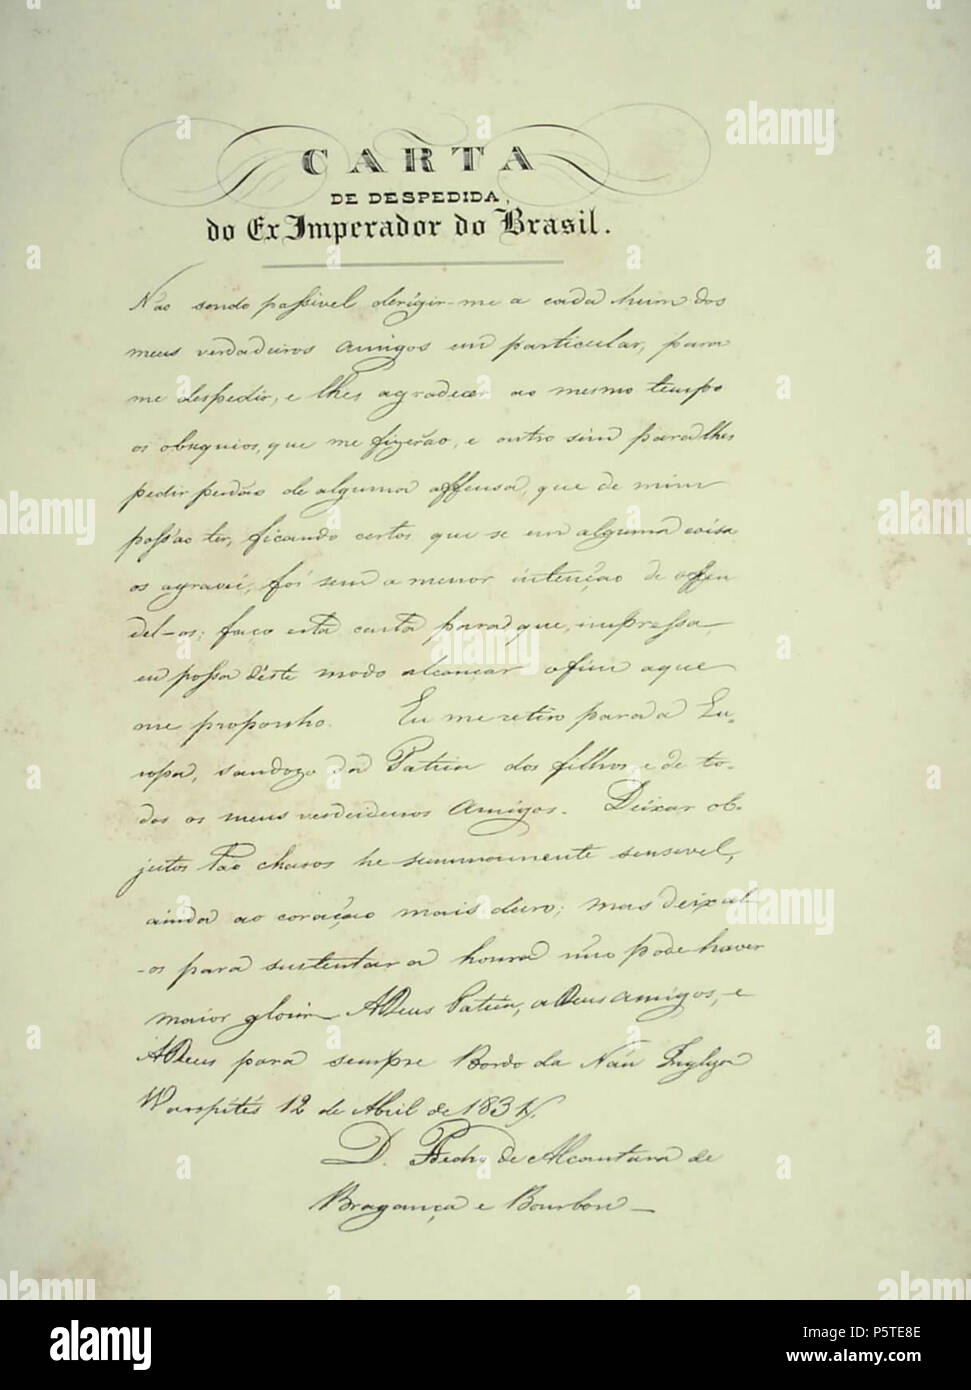 CARTA
DE DESPEDIDA,
do Ex Imperador do Brasil.
Não sendo passivel derigir-me a cada hum dos
meus verdadeiros amigos em particular, para
me despedir, e lhes agradecer ao mesmo tempo
os obsequios, que me fizerão, e outro sim para lhes
pedir perdão de alguma offensa, que de mim
possão ter, ficando certos que se em alguma coisa
os agravei, foi sem a menor intenção de offen
del-os; faço esta carta para que, impressa
eu possa déste modo alcancar o fim a que
me proponho. Eu me retiro para a Eu-
ropa, saudozo da Patria dos filhos e de to-
dos os meus verdadeiros Amigos. Deixar ob-
jectos tão charos he summamente sensivel,
ainda ao coração mais duro; mas deixal
-os para sustentar a honra não pode haver
maior gloria ADeus Patria, aDeus amigos, e
ADeus para sempre Bordo da Náu Ingleza
Warspites 12 de Abril de 1831
D. Pedro de Alcantara de
Bragança e Bourbon
alamy
alamy
alamy
alamy
alamy
alamy
alamy
Image ID: P5TE8E
www.alamy.com